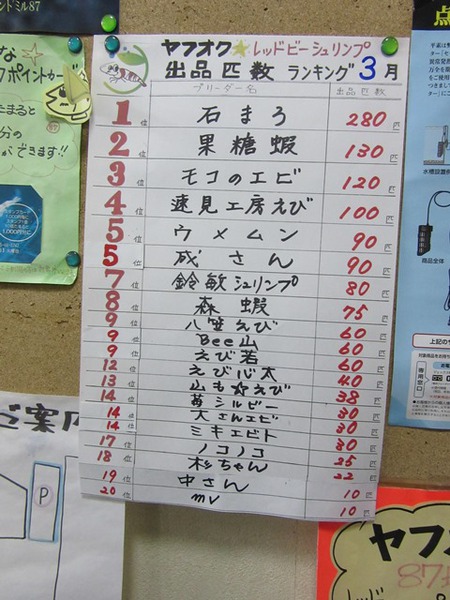 ヤフオク☆レッドビーシュリンプ
出品匹数 ランキング 3月
ブリーダー名 出品匹数
1位 石まろ 280匹
2位 果糖蝦 130匹
3位 モコのエビ 120匹
4位 速見工房えび 100匹
5位 ウメムン 90匹
5位 成さん 90匹
7位 鈴敏シュリンプ 80匹
8位 森蝦 75匹
9位 八笠えび 60匹
9位 Bee山 60匹
9位 えび若 60匹
12位 えび心太 40匹
13位 山も★えび 38匹
14位 苺シルビー 30匹
14位 大さんエビ 30匹
14位 ミキエビト 30匹
17位 ノコノコ 25匹
18位 杉ちゃん 22匹
19位 中さん 10匹
20位 mv 10匹
ンドミル87
な☆
ポイントカード
たまると
分の
ができます!!
ご案内
P
点
商品全体
上記の
専用窓口
ヤフオ
87
レッド